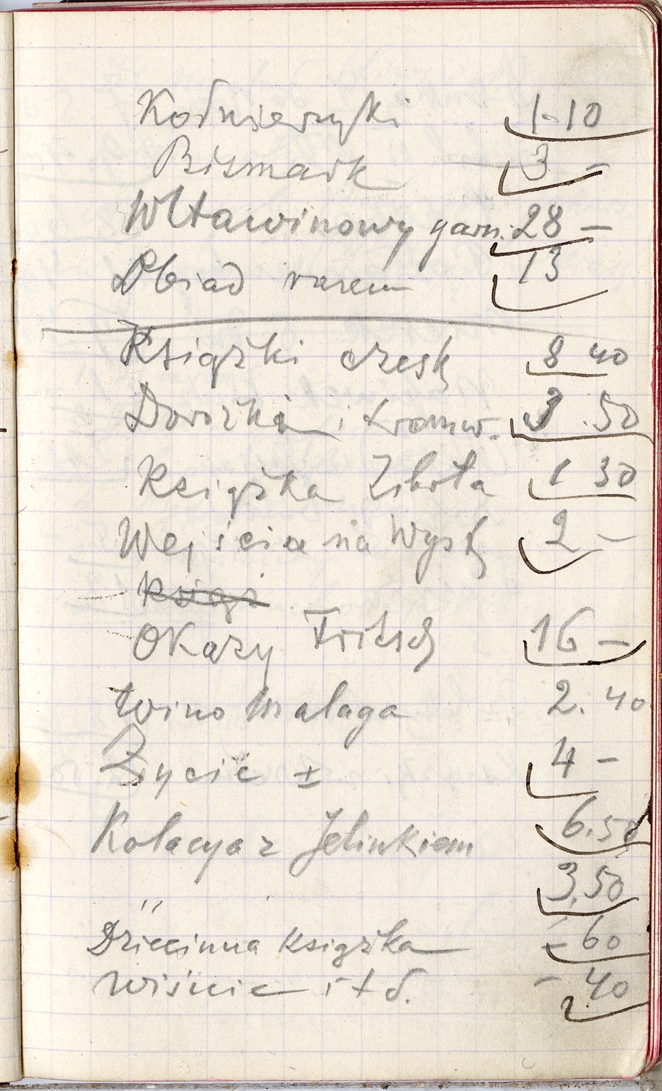 Kołnierzyki 1.10
Bismark 3 –
Wltawinowy garn. 28 –
Obiad razem 13
Książki czesk 8 40
Dorożka i tramw. 3.50
Książka Zibrta 1 30
Wejścia na Wyst 2 –
Książ
Okazy Fritsch 16 –
Wino Malaga 2.40
Życie ± 4 –
Kolacya z Jelinkiem 6.50
" 3,50
Dziecinna książka – 60
Wiśnie i t d. – 40